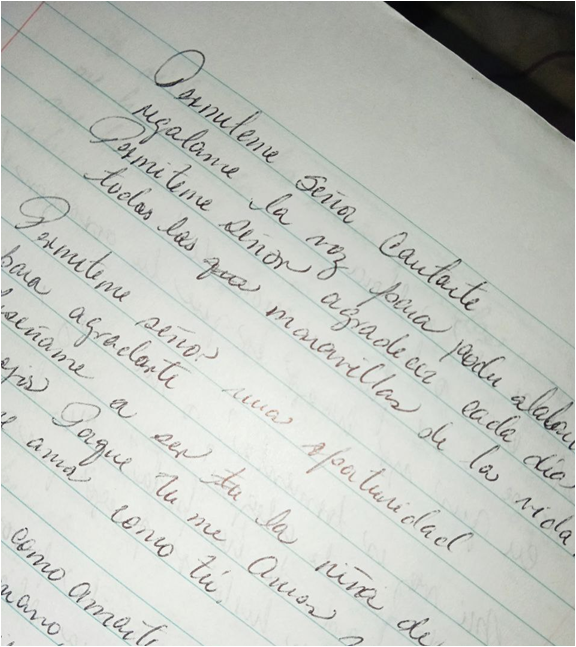 Permiteme señor cantarte
regalame la voz para poder alabar
Permiteme señor agradecer cada dia
todas las maravillas de la vida
Permiteme señor una oportunidad
para agradarte
enseñame a ser tu la niña de
ojos Porque tu me amas
ama como tú.
como amarte
mano